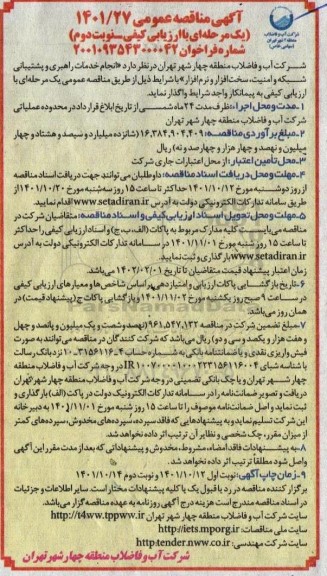 شرکت آب و فاضلاب
منطقه ۴ شهر تهران
(سهامی خاص)
آگهی مناقصه عمومی ۱۴۰۱/۲۷
(یک مرحله‌ای با ارزیابی کیفی_نوبت دوم)
شماره فراخوان ۲۰۰۱۰۹۳۵۴۳۰۰۰۰۴۲
شرکت آب و فاضلاب منطقه چهار شهر تهران در نظر دارد «انجام خدمات راهبری و پشتیبانی
شبکه و امنیت، سخت‌افزار و نرم‌افزار» با شرایط ذیل از طریق مناقصه عمومی یک مرحله‌ای با
ارزیابی کیفی به پیمانکار واجد شرایط واگذار نماید.
۱ـ مدت و محل اجرا: ظرف مدت ۲۴ ماه شمسی از تاریخ ابلاغ قرارداد در محدوده عملیاتی
شرکت آب و فاضلاب منطقه چهار شهر تهران
۲ـ مبلغ برآوردی مناقصه: ۱۶,۳۸۴,۹۰۴,۴۰۹ (شانزده میلیارد و سیصد و هشتاد و چهار
میلیون و نهصد و چهار هزار و چهارصد و نه) ریال
۳ـ محل تامین اعتبار: از محل اعتبارات جاری شرکت
۴ـ مهلت و محل دریافت اسناد مناقصه: داوطلبان می‌توانند جهت دریافت اسناد مناقصه
از روز دوشنبه مورخ ۱۴۰۱/۱۰/۱۲ حداکثر تا ساعت ۱۵ روز سه‌شنبه مورخ ۱۴۰۱/۱۰/۲۰ از
طریق سامانه تدارکات الکترونیکی دولت به آدرس www.setadiran.ir اقدام نمایید.
۵ـ مهلت و محل تحویل اسناد ارزیابی کیفی و اسناد مناقصه: متقاضیان شرکت در
مناقصه می‌بایست کلیه مدارک مربوط به پاکات (الف، ب، ج) و اسناد ارزیابی کیفی را حداکثر
تا ساعت ۱۵ روز شنبه مورخ ۱۴۰۱/۱۱/۰۱ در سامانه تدارکات الکترونیکی دولت به آدرس
www.setadiran.ir بارگذاری و ثبت نمایید.
زمان اعتبار پیشنهاد قیمت متقاضیان تا تاریخ ۱۴۰۲/۰۲/۰۱ می‌باشد.
۶ـ تاریخ بازگشایی پاکات ارزیابی و امتیازدهی براساس شاخص‌ها و معیارهای ارزیابی کیفی
در ساعت ۹ صبح روز یکشنبه مورخ ۱۴۰۱/۱۱/۰۲ و بازگشایی پاکات ج (پیشنهاد قیمت) در
همان روز می‌باشد.
۷ـ مبلغ تضمین شرکت در مناقصه ۹۶۱,۵۴۷,۱۳۲ (نهصد و شصت و یک میلیون و پانصد و چهل
و هفت هزار و یکصد و سی و دو) ریال می‌باشد که شرکت کنندگان در مناقصه می‌توانند به صورت
فیش واریزی نقدی و یا ضمانتنامه بانکی به شماره حساب نزد بانک رسالت
با شناسه شبای در وجه شرکت آب و فاضلاب منطقه
چهار شهر تهران و یا چک بانکی تضمینی در وجه شرکت آب و فاضلاب منطقه چهار شهر تهران
دریافت و تصویر ضمانت‌نامه را در سامانه تدارکات الکترونیک دولت در پاکت (الف) بارگذاری و
ثبت نماید و اصل ضمانت‌نامه موصوف را تا ساعت ۱۵ روز شنبه مورخ ۱۴۰۱/۱۱/۰۱ به دبیرخانه
این شرکت تسلیم نماید و به پیشنهادهایی که فاقد سپرده، سپرده‌های مخدوش، سپرده‌های کمتر
از میزان مقرر، چک شخصی و نظایر آن ترتیب اثر داده نخواهد شد.
۸ـ به پیشنهادات فاقد امضاء، مشروط، مخدوش و پیشنهاداتی که بعد از مدت مقرر این آگهی
واصل شود مطلقاً ترتیب اثر داده نخواهد شد.
۹ـ زمان چاپ آگهی: نوبت اول ۱۴۰۱/۱۰/۱۲ و نوبت دوم ۱۴۰۱/۱۰/۱۴
برگزار کننده مناقصه در رد یا قبول یک یا کلیه پیشنهادات مختار است. سایر اطلاعات و جزئیات
در اسناد مناقصه مندرج است هزینه درج آگهی روزنامه به عهده مناقصه گزار می‌باشد.
سایت شرکت آب و فاضلاب منطقه چهار شهر تهران http://t4ww.tppww.ir
سایت ملی مناقصات: http://iets.mporg.ir
سایت شرکت مهندسی: http:tender.nww.co.ir
شرکت آب و فاضلاب منطقه چهار شهر تهران